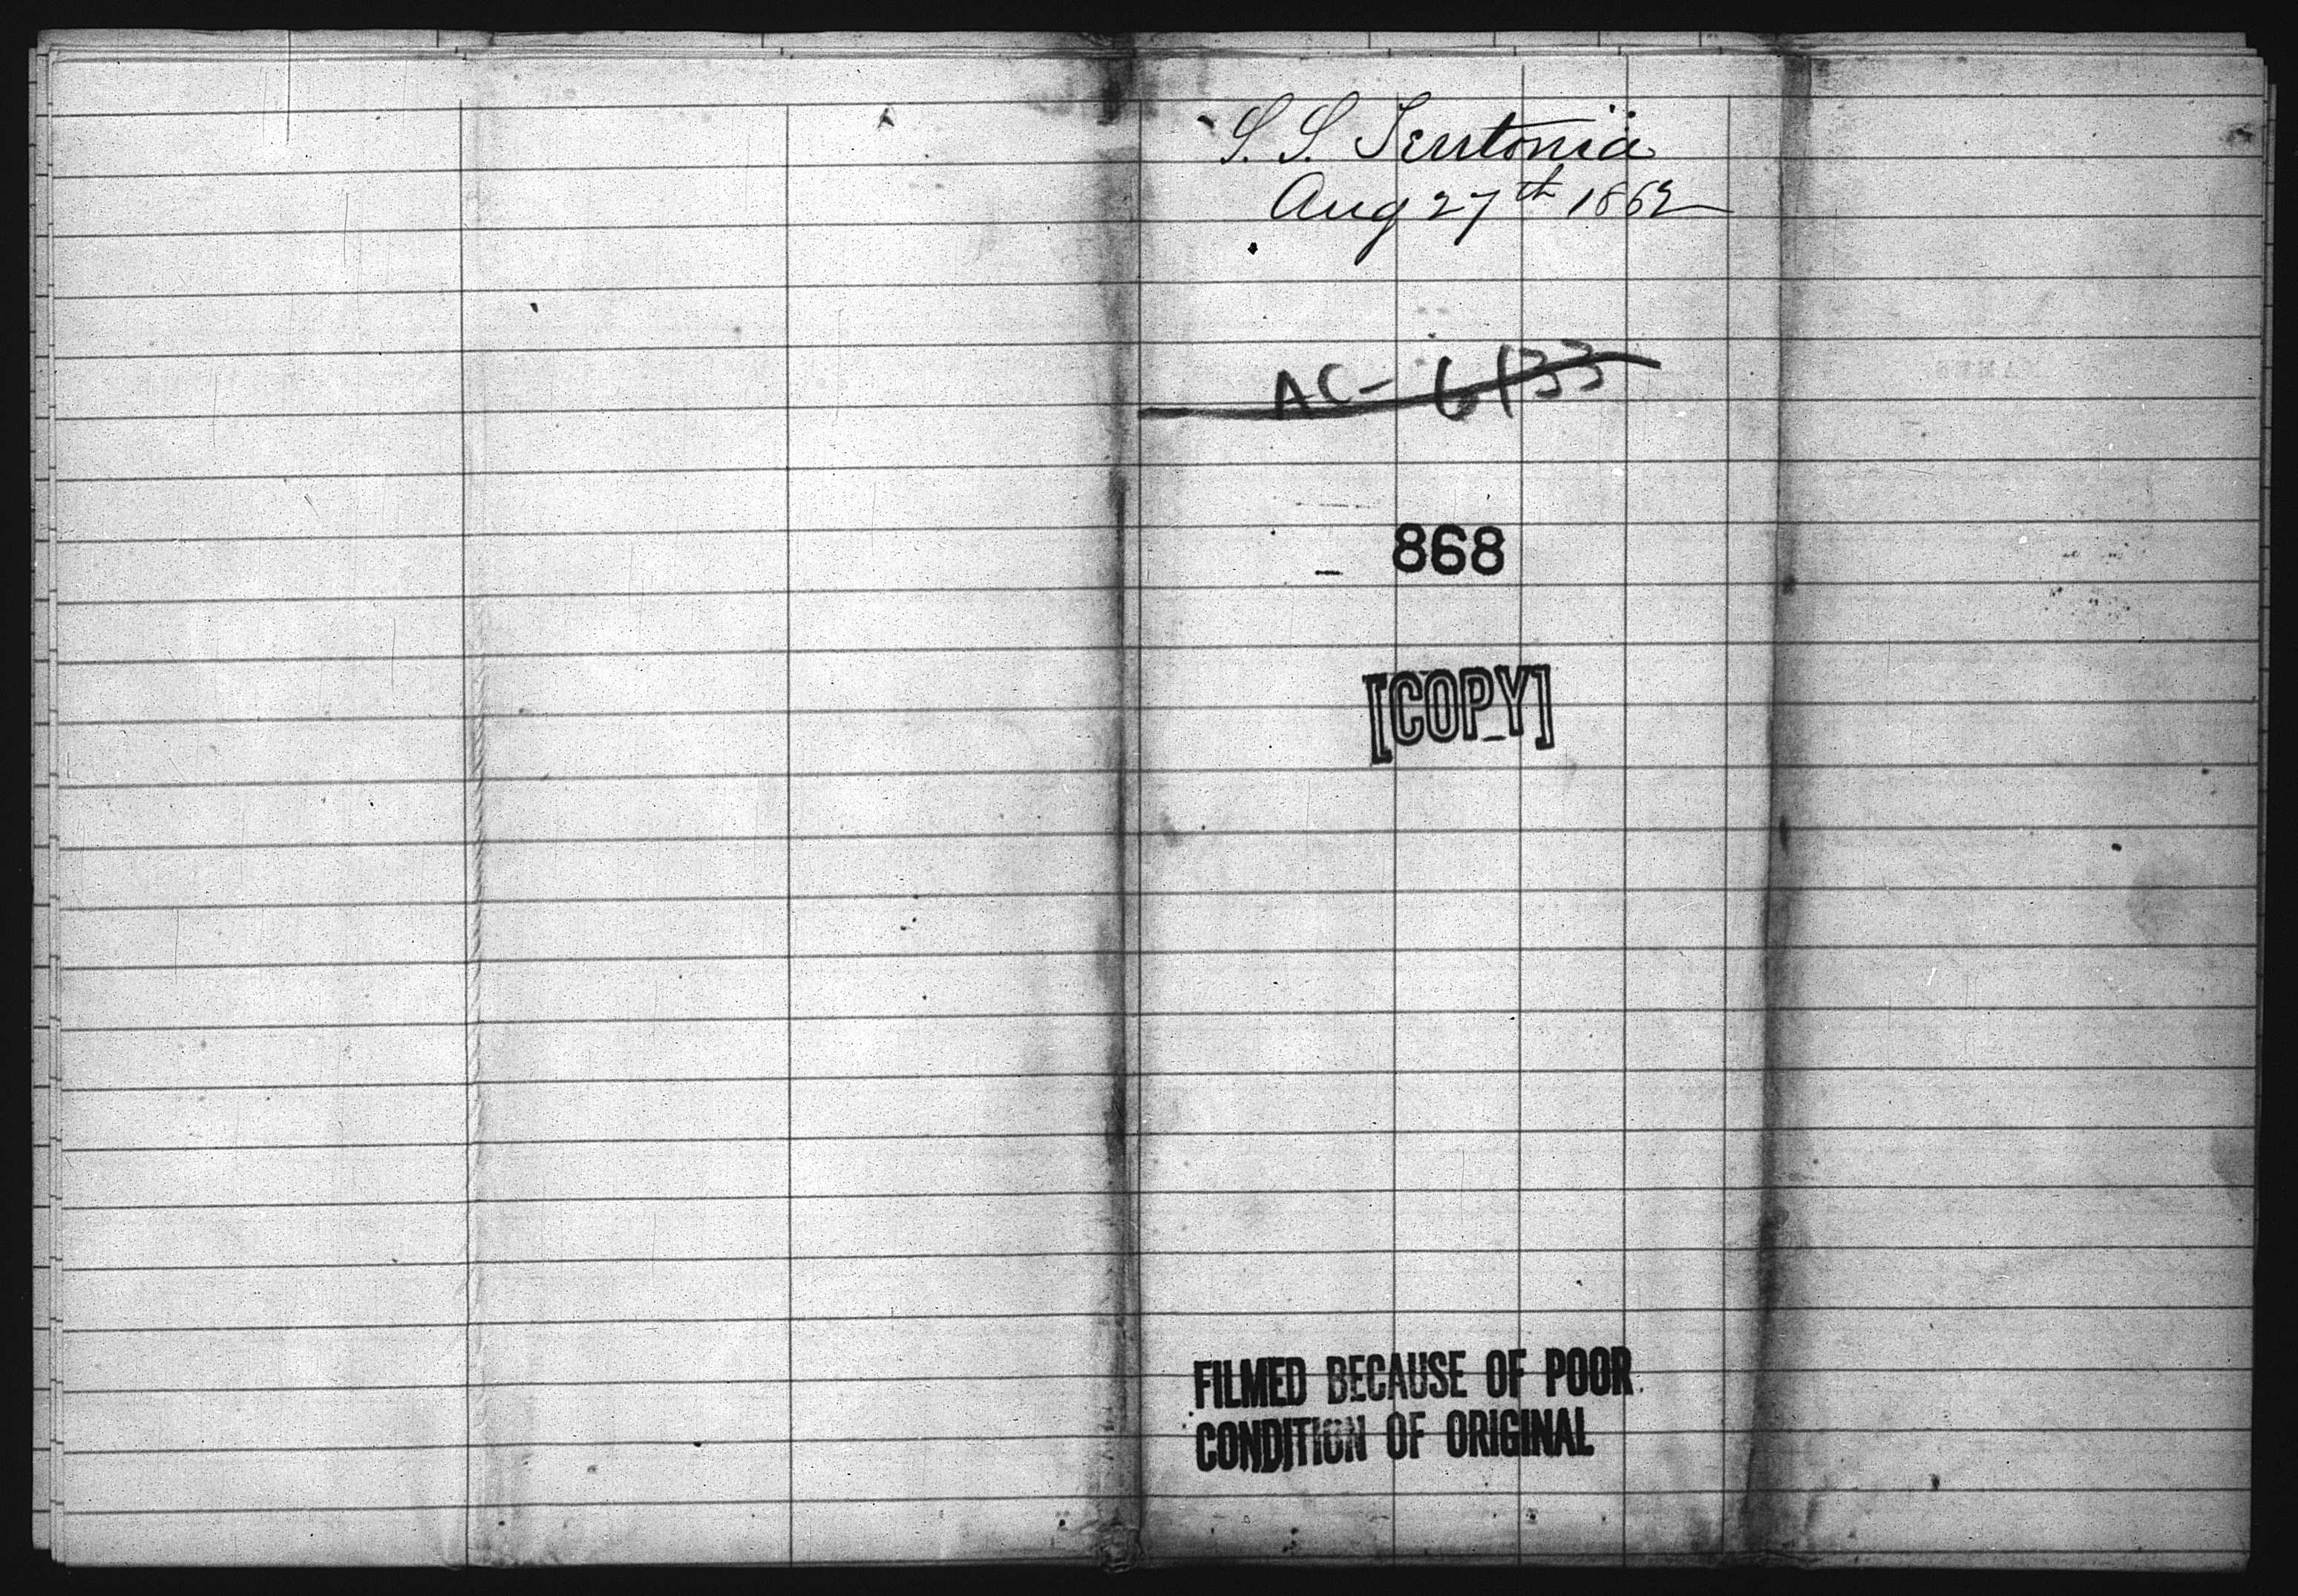 S. S. Teutonia
Aug 27th 1862
AC- 6133
868
[COPY]
FILMED BECAUSE OF POOR
CONDITION OF ORIGINAL